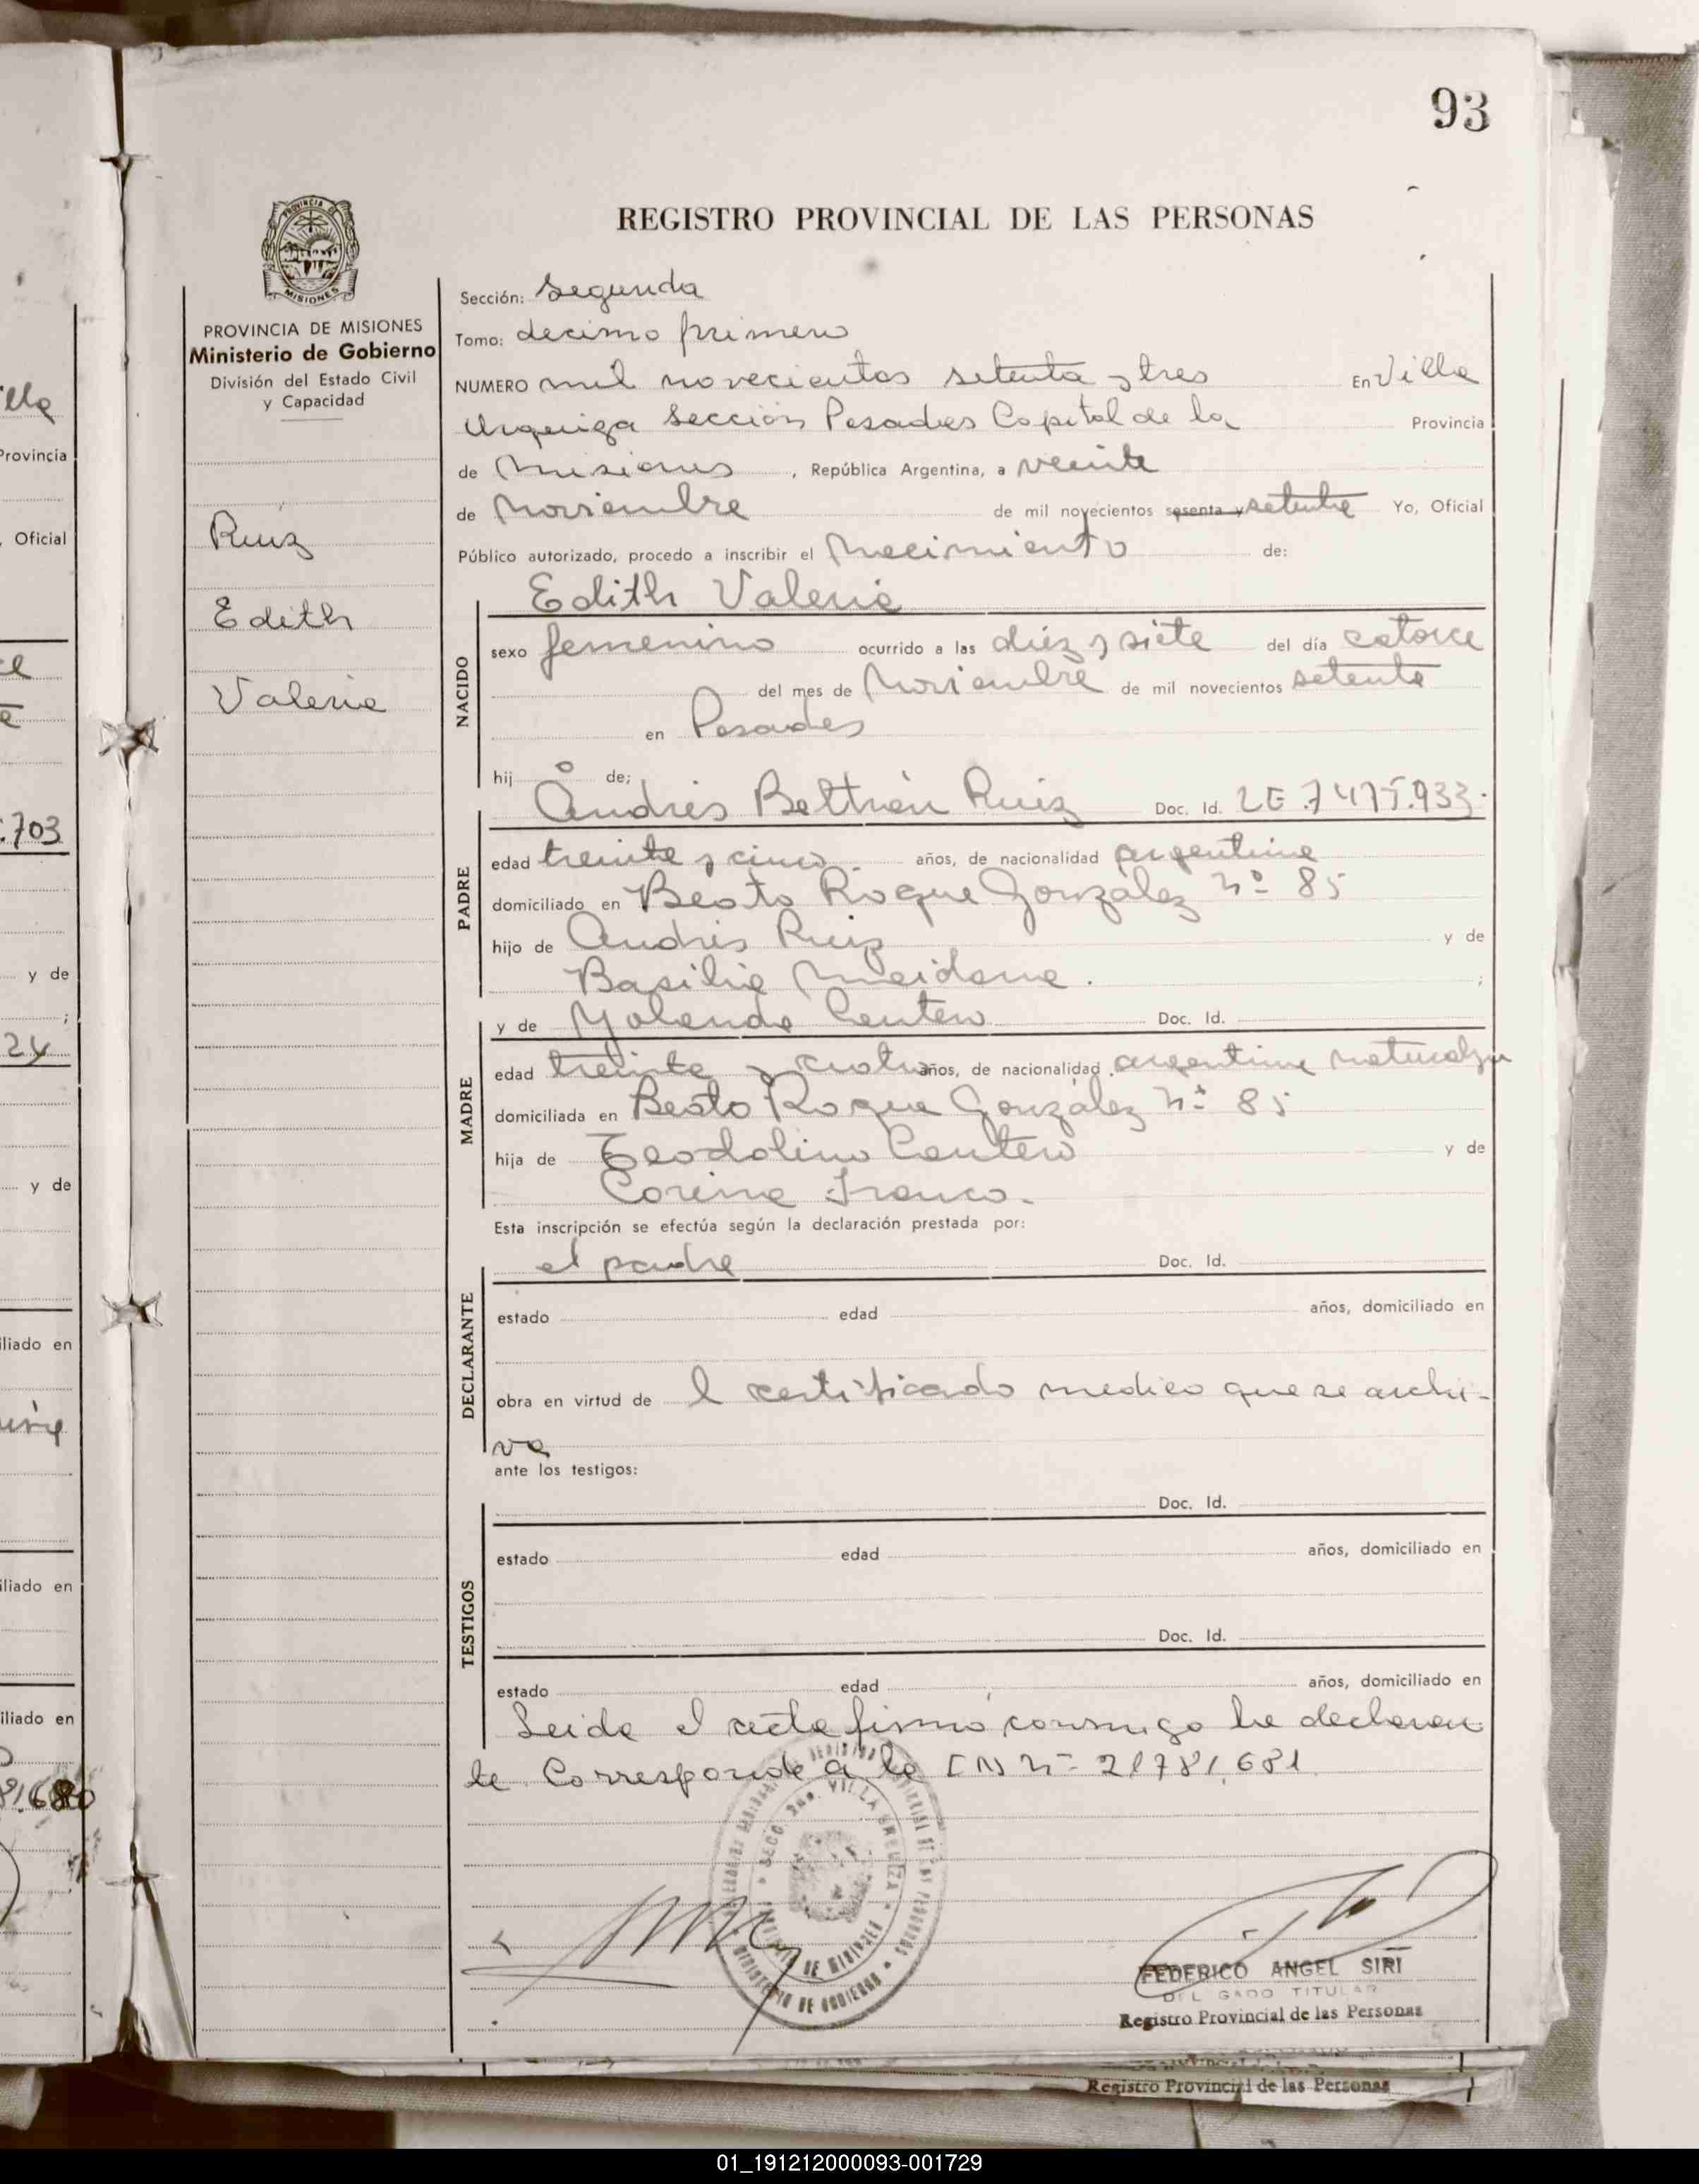 93
REGISTRO PROVINCIAL DE LAS PERSONAS
PROVINCIA DE MISIONES
PROVINCIA DE MISIONES
Ministerio de Gobierno
División del Estado Civil
y Capacidad
Ruiz
Edith
Valeria
Sección: Segunda
Tomo: decimo primero
NUMERO mil novecientos setenta y tres En Villa
Urquiza Sección Posadas Capital de la Provincia
de Misiones , República Argentina, a veinte
de Noviembre de mil novecientos sesenta y setenta Yo, Oficial
Público autorizado, procedo a inscribir el Nacimiento de:
Edith Valeria
NACIDO
sexo femenino ocurrido a las diez y siete del día catorce
del mes de Noviembre de mil novecientos setenta
en Posadas
hij o de;
Andrés Beltrán Ruiz Doc. Id. LE.7475.933.
PADRE
edad treinta y cinco años, de nacionalidad argentina
domiciliado en Beato Roque González nº 85
hijo de Andrés Ruiz y de
Basilia Maidana. ;
y de Yolanda Centero Doc. Id.
MADRE
edad treinta y cuatro años, de nacionalidad argentina
domiciliada en Beato Roque González nº 85
hija de Teodolino Centero y de
Corina Franco.
Esta inscripción se efectúa según la declaración prestada por:
el padre Doc. Id.
DECLARANTE
estado edad años, domiciliado en
obra en virtud de l certificado medico que se archi-
va
ante los testigos:
Doc. Id.
TESTIGOS
estado edad años, domiciliado en
Doc. Id.
estado edad años, domiciliado en
Leida el acta firma conmigo la declaran
te Corresponde a la nº 21781.681
FEDERICO ANGEL SIRI
DELEGADO TITULAR
Registro Provincial de las Personas
Registro Provincial de las Personas
lla
Provincia
, Oficial
.703
y de
;
24
y de
iliado en
iliado en
iliado en
01_191212000093-001729